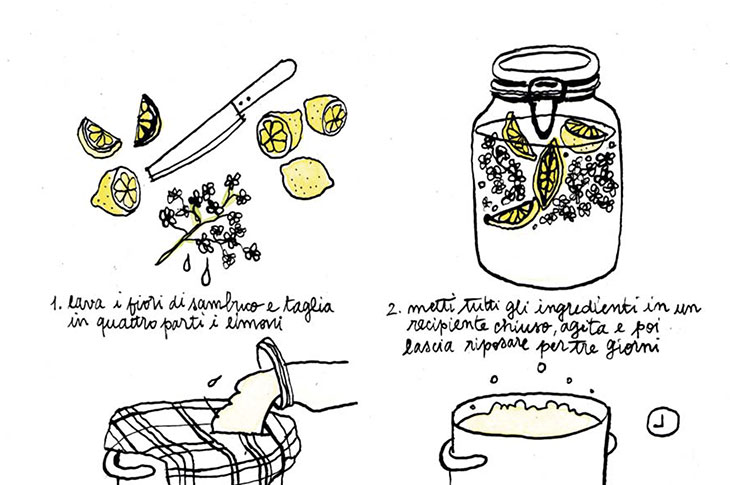 1. lava i fiori di sambuco e taglia
in quattro parti i limoni
2. metti tutti gli ingredienti in un
recipiente chiuso, agita e poi
lascia riposare per tre giorni